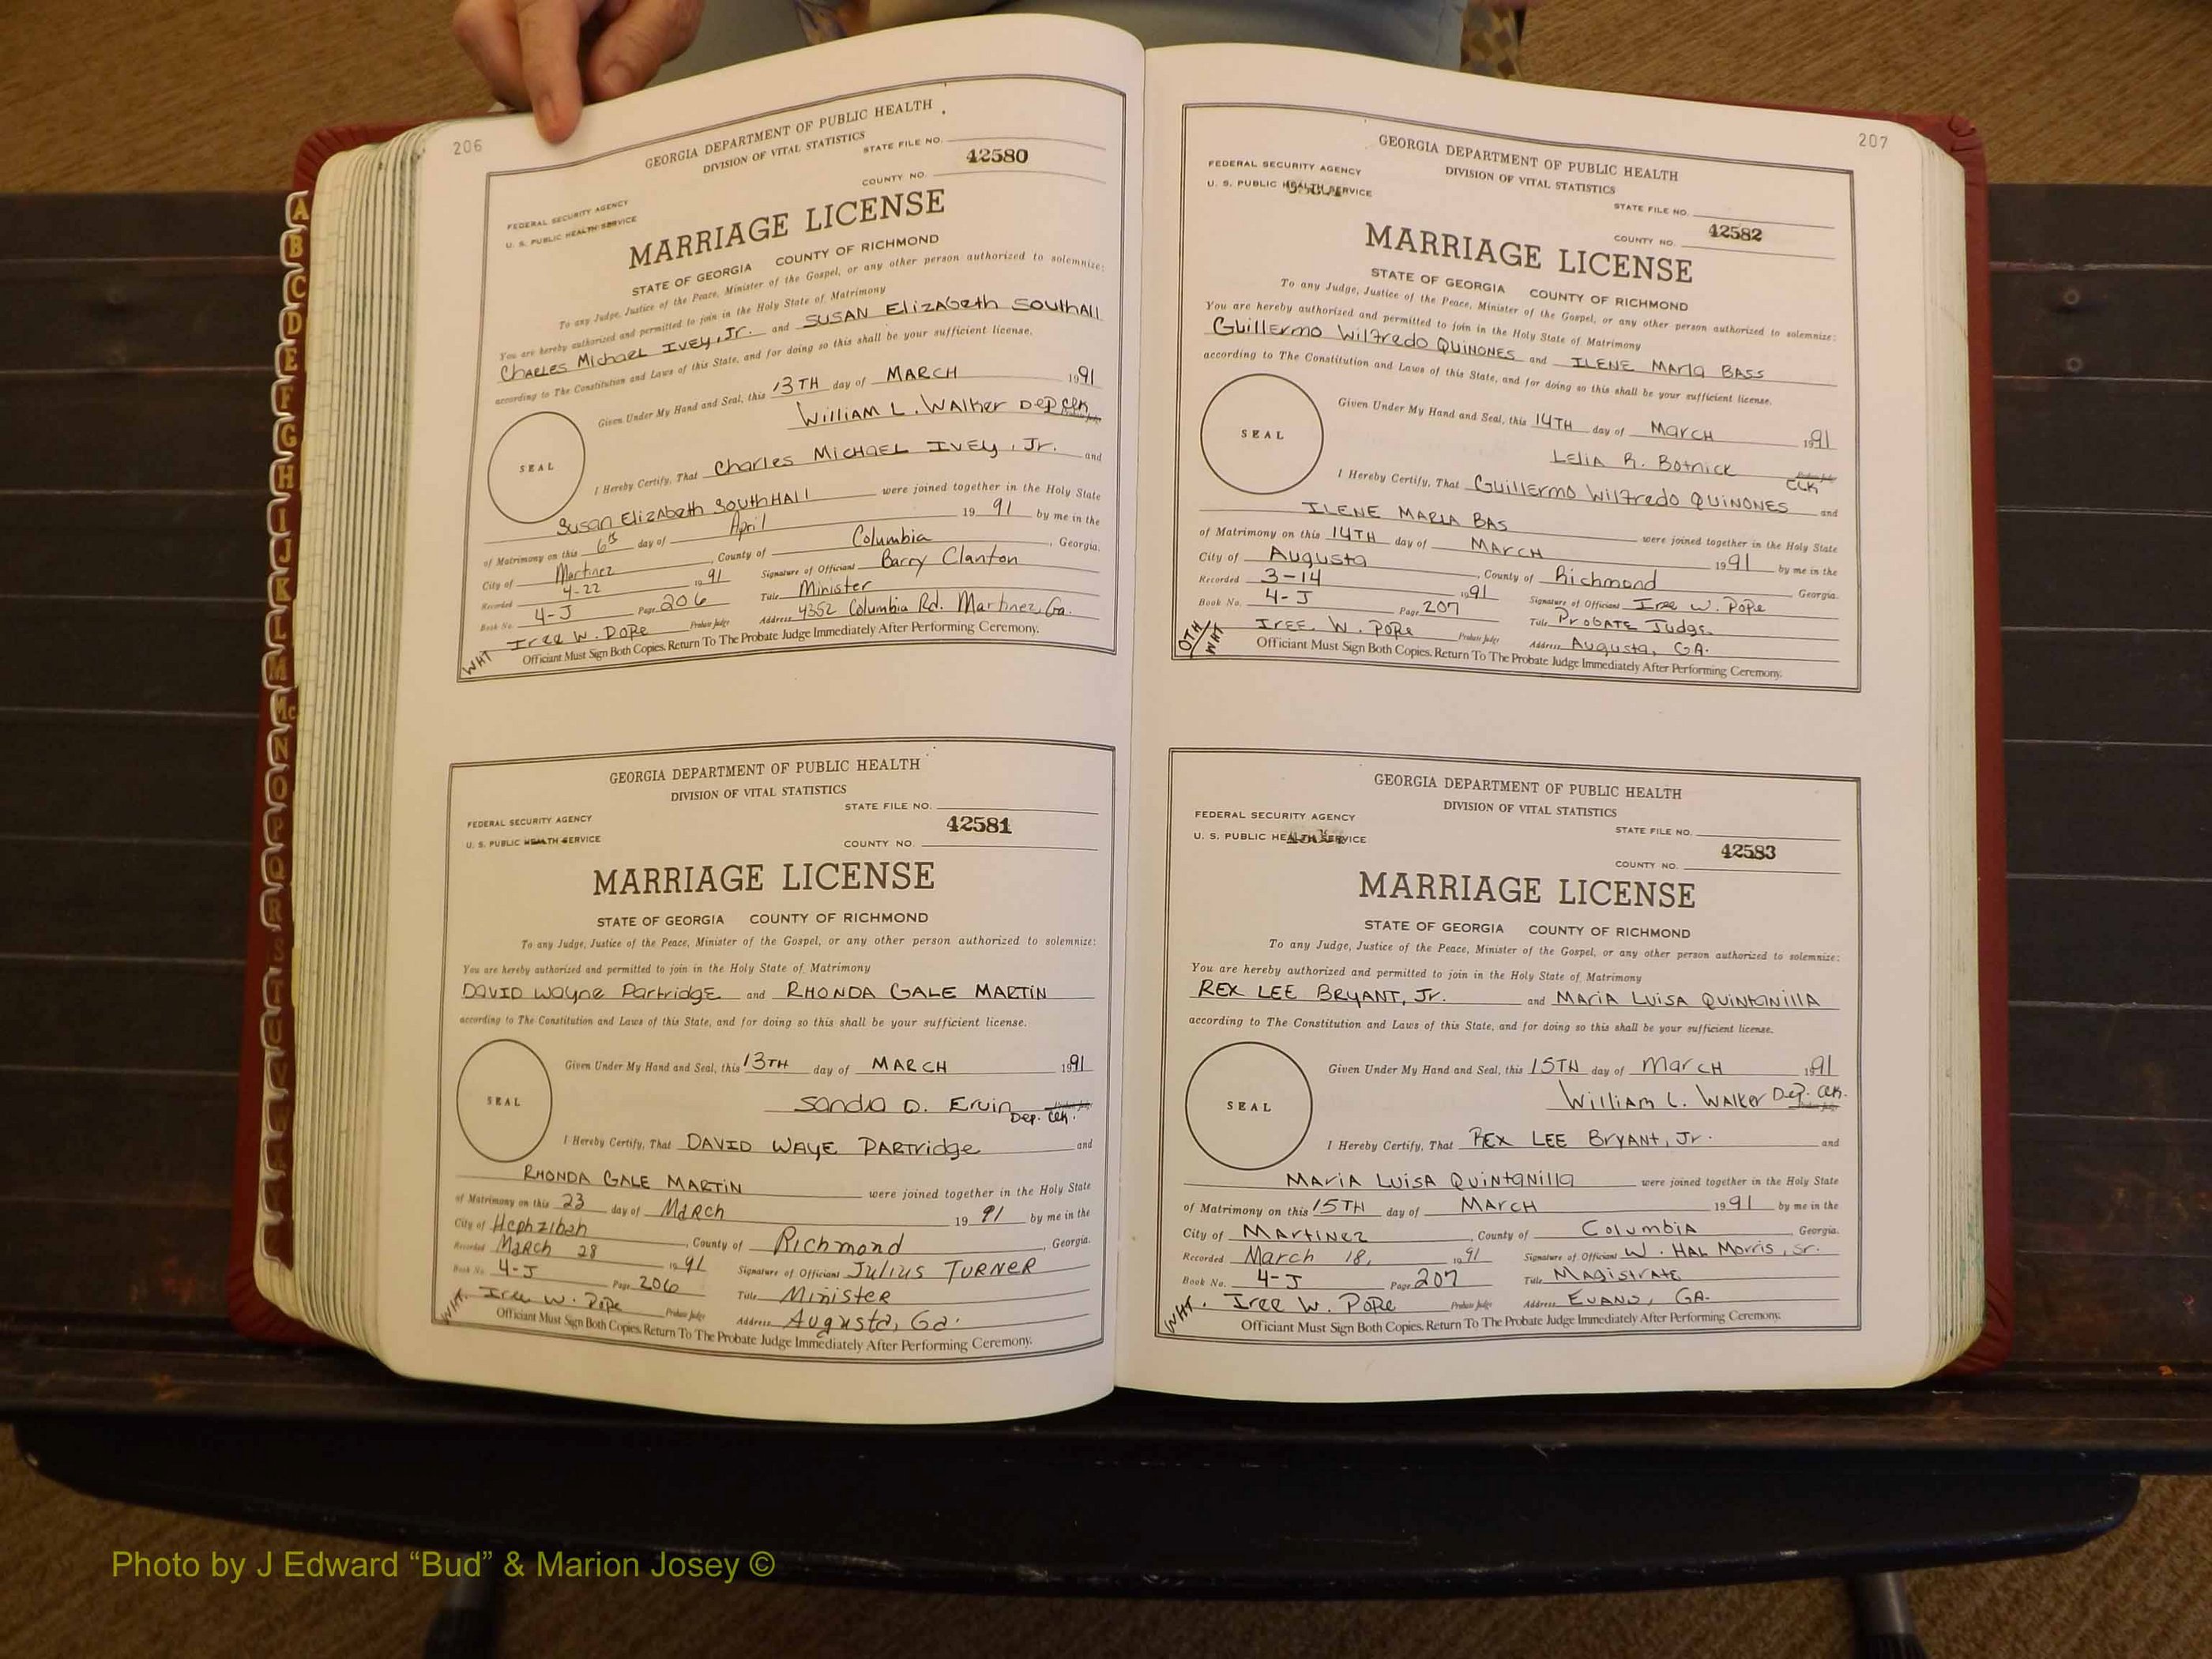 206
GEORGIA DEPARTMENT OF PUBLIC HEALTH
DIVISION OF VITAL STATISTICS
STATE FILE NO.
42580
COUNTY NO.
FEDERAL SECURITY AGENCY
U. S. PUBLIC HEALTH SERVICE
MARRIAGE LICENSE
STATE OF GEORGIA COUNTY OF RICHMOND
To any Judge, Justice of the Peace, Minister of the Gospel, or any other person authorized to solemnize:
You are hereby authorized and permitted to join in the Holy State of Matrimony
Charles Michael Ivey, Jr. and SUSAN ElizAbeth SouthAll
according to The Constitution and Laws of this State, and for doing so this shall be your sufficient license.
Given Under My Hand and Seal, this 13TH day of MARCH 1991
William L. Walker Dep Clk
Probate Judge
SEAL
I Hereby Certify, That Charles Michael Ivey, Jr. and
Susan ElizAbeth SouthHAll were joined together in the Holy State
of Matrimony on this 6th day of April 19 91 by me in the
City of Martinez, County of Columbia, Georgia.
Recorded 4-22 1991 Signature of Officiant Barry Clanton
Book No. 4-J Page 206 Title Minister
Iree W. Pope Probate Judge Address 4352 Columbia Rd. Martinez, Ga.
WHT Officiant Must Sign Both Copies. Return To The Probate Judge Immediately After Performing Ceremony.
GEORGIA DEPARTMENT OF PUBLIC HEALTH
DIVISION OF VITAL STATISTICS
STATE FILE NO.
42581
FEDERAL SECURITY AGENCY
U. S. PUBLIC HEALTH SERVICE
COUNTY NO.
MARRIAGE LICENSE
STATE OF GEORGIA COUNTY OF RICHMOND
To any Judge, Justice of the Peace, Minister of the Gospel, or any other person authorized to solemnize:
You are hereby authorized and permitted to join in the Holy State of Matrimony
DAVID Wayne Partridge and RHONDA GALE MARTIN
according to The Constitution and Laws of this State, and for doing so this shall be your sufficient license.
Given Under My Hand and Seal, this 13TH day of MARCH 1991
Sandra D. Ervin Dep. Clk.
Probate Judge
SEAL
I Hereby Certify, That DAVID WAYE PARTridge and
RHONDA GALE MARTIN were joined together in the Holy State
of Matrimony on this 23 day of March 19 91 by me in the
City of Hephzibah, County of Richmond, Georgia.
Recorded March 28 1991 Signature of Officiant Julius TURNER
Book No. 4-J Page 206 Title Minister
Iree W. Pope Probate Judge Address Augusta, Ga.
WHT. Officiant Must Sign Both Copies. Return To The Probate Judge Immediately After Performing Ceremony.
207
GEORGIA DEPARTMENT OF PUBLIC HEALTH
DIVISION OF VITAL STATISTICS
FEDERAL SECURITY AGENCY
U. S. PUBLIC HEALTH SERVICE
STATE FILE NO.
42582
COUNTY NO.
MARRIAGE LICENSE
STATE OF GEORGIA COUNTY OF RICHMOND
To any Judge, Justice of the Peace, Minister of the Gospel, or any other person authorized to solemnize:
You are hereby authorized and permitted to join in the Holy State of Matrimony
Guillermo Wilfredo QUINONES and ILENE Maria BASS
according to The Constitution and Laws of this State, and for doing so this shall be your sufficient license.
Given Under My Hand and Seal, this 14TH day of March 1991
Lelia R. Botnick Clk
Probate Judge
SEAL
I Hereby Certify, That Guillermo Wilfredo QUINONES and
ILENE MARIA BAS were joined together in the Holy State
of Matrimony on this 14TH day of March 1991 by me in the
City of Augusta, County of Richmond Georgia.
Recorded 3-14 1991 Signature of Officiant Iree W. Pope
Book No. 4-J Page 207 Title Probate Judge
IREE W. Pope Probate Judge Address Augusta, GA.
OTH/WHT Officiant Must Sign Both Copies. Return To The Probate Judge Immediately After Performing Ceremony.
GEORGIA DEPARTMENT OF PUBLIC HEALTH
DIVISION OF VITAL STATISTICS
FEDERAL SECURITY AGENCY
U. S. PUBLIC HEALTH SERVICE
STATE FILE NO.
42583
COUNTY NO.
MARRIAGE LICENSE
STATE OF GEORGIA COUNTY OF RICHMOND
To any Judge, Justice of the Peace, Minister of the Gospel, or any other person authorized to solemnize:
You are hereby authorized and permitted to join in the Holy State of Matrimony
REX LEE BRYANT, Jr. and MARIA LUISA QUINTANILLA
according to The Constitution and Laws of this State, and for doing so this shall be your sufficient license.
Given Under My Hand and Seal, this 15TH day of March 1991
William L. Walker Dep. Clk.
Probate Judge
SEAL
I Hereby Certify, That REX LEE BryANt, Jr. and
MARIA LUISA QUINTANILLA were joined together in the Holy State
of Matrimony on this 15TH day of March 1991 by me in the
City of Martinez, County of Columbia Georgia.
Recorded March 18, 1991 Signature of Officiant W. HAL Morris, Sr.
Book No. 4-J Page 207 Title Magistrate
Iree W. Pope Probate Judge Address EVANS, GA.
WHT. Officiant Must Sign Both Copies. Return To The Probate Judge Immediately After Performing Ceremony.
A
B
C
D
E
F
G
H
I
J
K
L
M
Mc
N
O
P
Q
R
S
T
U
V
W
Photo by J Edward “Bud” & Marion Josey ©